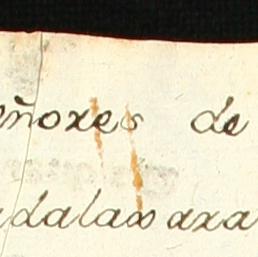 eñores de
adalaxaxa